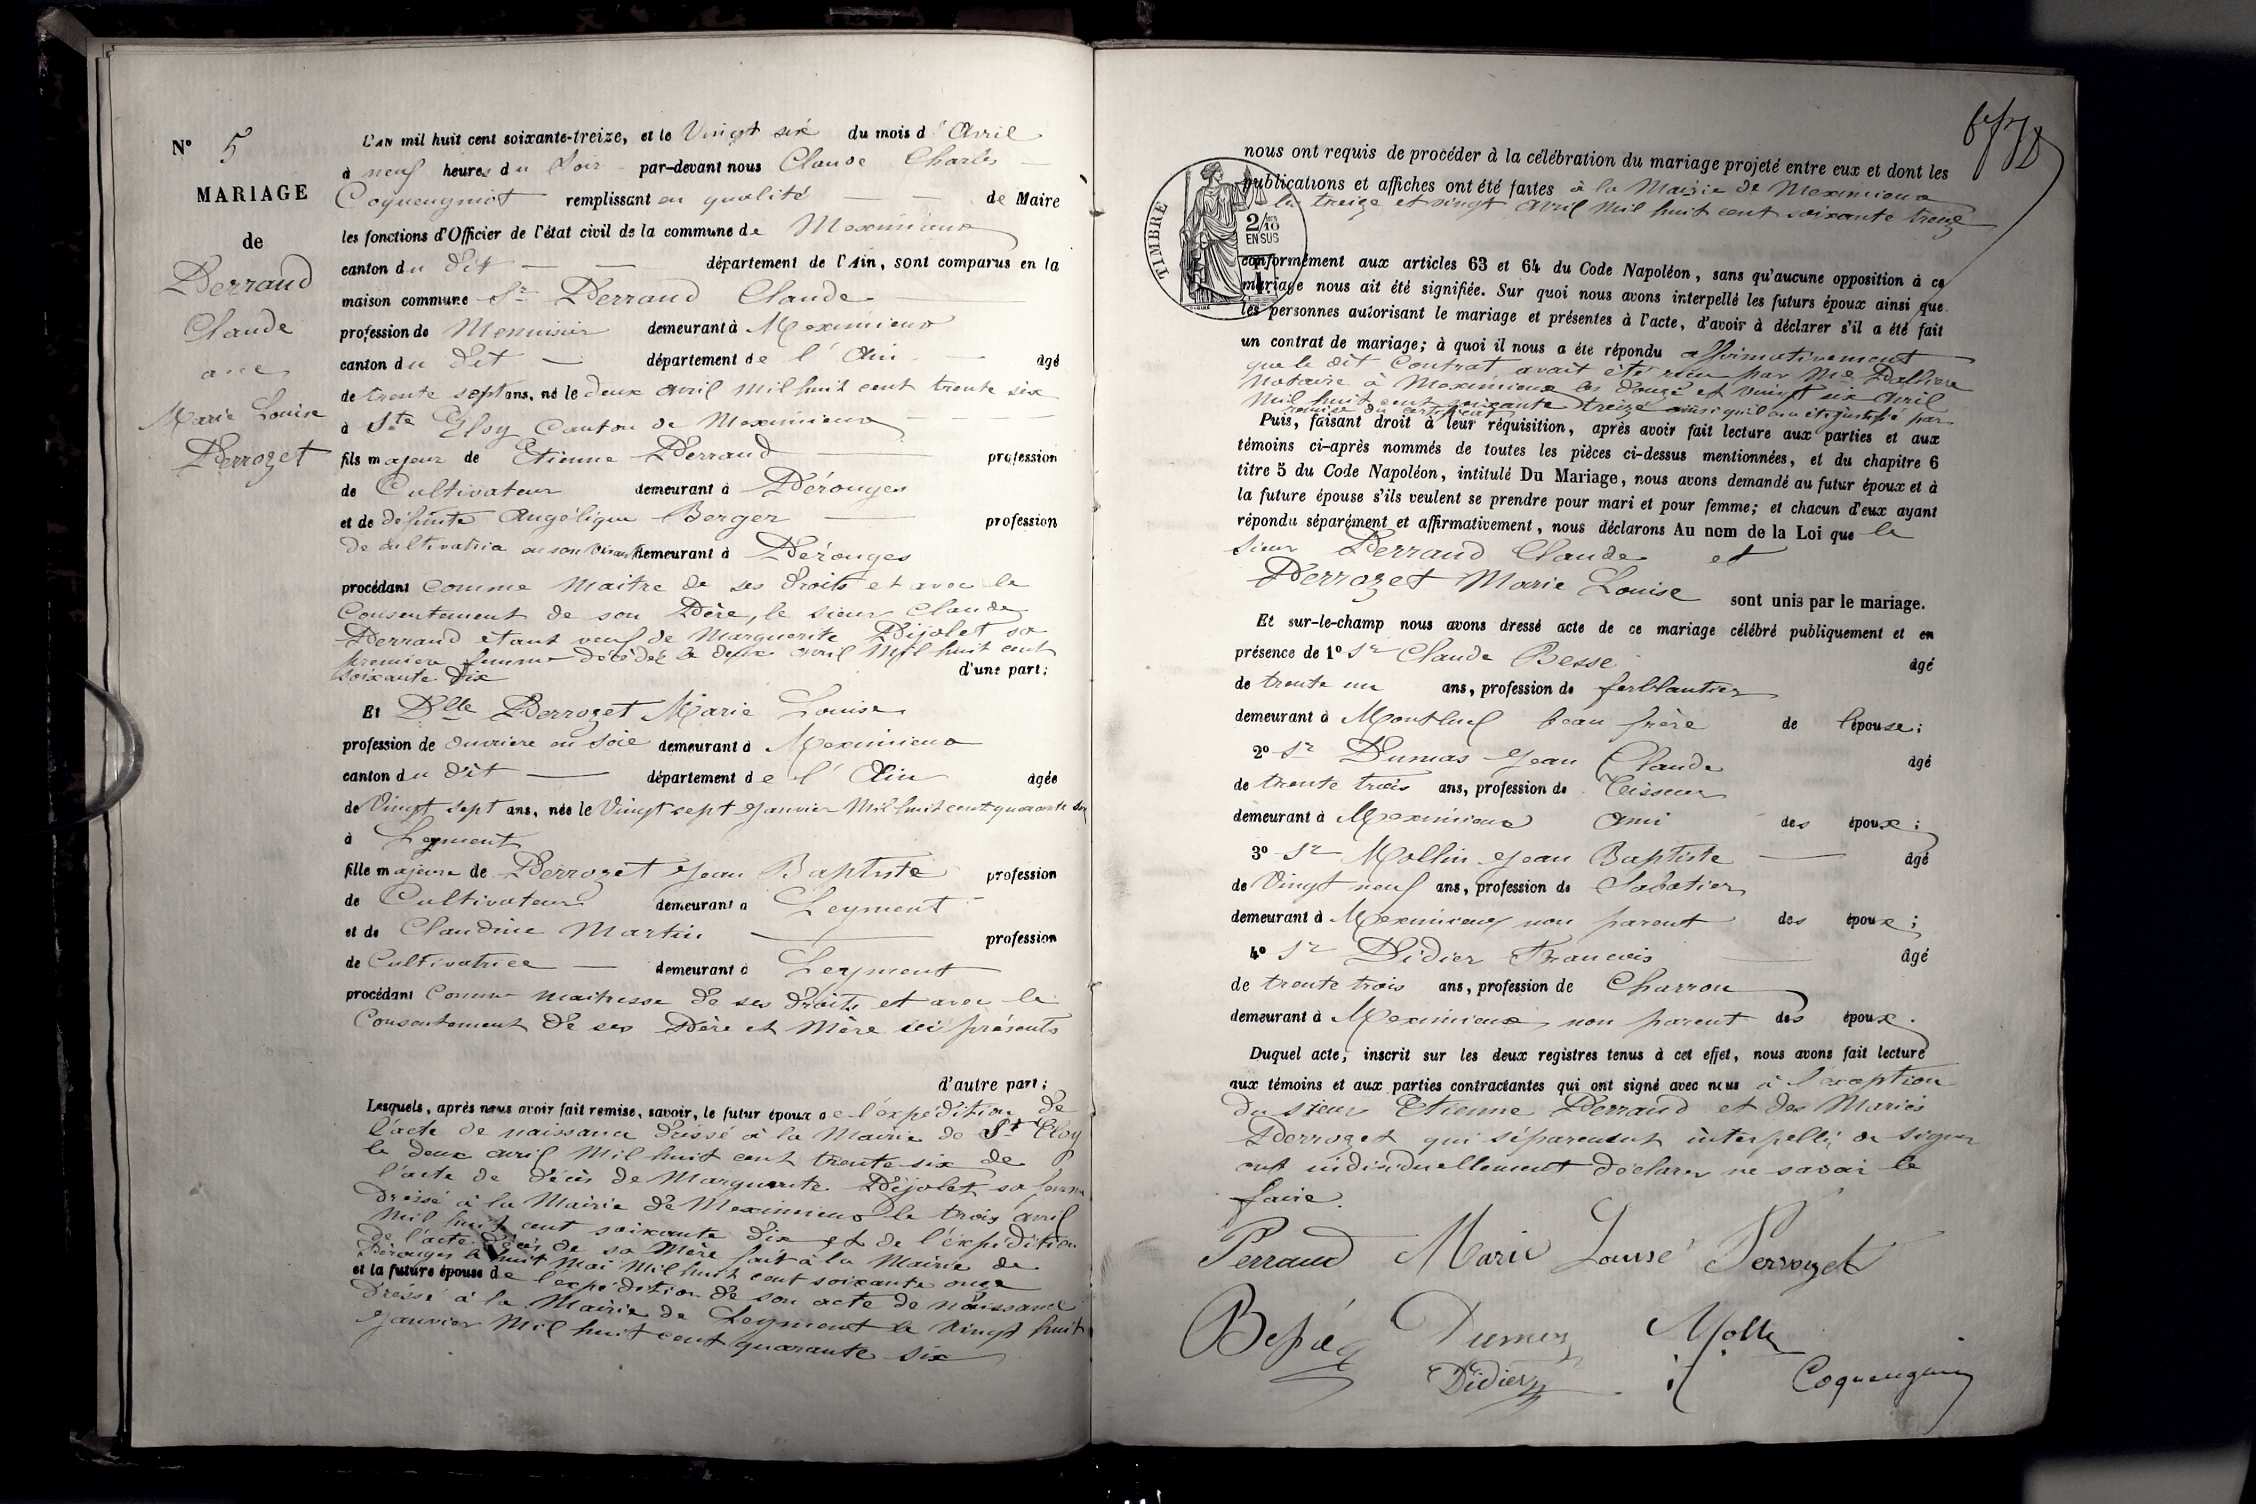 N° 5
MARIAGE
de
Perraud
Claude
avec
Marie Louise
Perrozet
L'AN mil huit cent soixante-treize, et le Vingt six du mois d'Avril
à neuf heures du Soir par-devant nous Claude Charles
Coqueugniot remplissant en qualité de Maire
les fonctions d'Officier de l'état civil de la commune de Meximieux
canton du dit département de l'Ain, sont comparus en la
maison commune Sr Perraud Claude
profession de Menuisier demeurant à Meximieux
canton du dit département de l'Ain âgé
de trente sept ans, né le deux avril mil huit cent trente six
à Ste Eloy Canton de Meximieux
fils majeur de Etienne Perraud profession
de Cultivateur demeurant à Pérouges
et de défunte Angélique Berger profession
de cultivatrice en son vivant demeurant à Pérouges
procédant comme maitre de ses droits et avec le
Consentement de son Père, le sieur Claude
Perraud etant veuf de Marguerite Péjolet sa
premiere femme décédée le deux avril Mil huit cent
soixante dix d'une part;
Et Dlle Perrozet Marie Louise
profession de ouvriere en soie demeurant à Meximieux
canton du dit département de l'Ain âgée
de Vingt sept ans, née le Vingt sept Janvier Mil huit cent quarante six
à Leyment
fille majeure de Perrozet Jean Baptiste profession
de Cultivateur demeurant à Leyment
et de Claudine Martin profession
de Cultivatrice demeurant à Leyment
procédant Comme maitresse de ses droits et avec le
Consentement de ses Père et Mère ici présents
d'autre part;
Lesquels, après nous avoir fait remise, savoir, le futur époux de l'expédition de
l'acte de naissance dressé à la Mairie de St Eloy
le deux avril Mil huit cent trente six de
l'acte de décès de Marguerite Péjolet sa femme
dressé à la Mairie de Meximieux le trois avril
Mil huit cent soixante dix et de l'expédition
de l'acte décès de sa Mère fait à la Mairie de
Pérouges le huit Mai Mil huit cent soixante onze
et la future épouse de l'expédition de son acte de naissance
dressé à la Mairie de Leyment le vingt huit
Janvier Mil huit cent quarante six
TIMBRE
2/10
EN SUS
nous ont requis de procéder à la célébration du mariage projeté entre eux et dont les
publications et affiches ont été faites à la Mairie de Meximieux
les treize et vingt avril Mil huit cent soixante treize
conformément aux articles 63 et 64 du Code Napoléon, sans qu'aucune opposition à ce
mariage nous ait été signifiée. Sur quoi nous avons interpellé les futurs époux ainsi que
les personnes autorisant le mariage et présentes à l'acte, d'avoir à déclarer s'il a été fait
un contrat de mariage; à quoi il nous a été répondu affirmativement
que le dit Contrat avait été reçu par Me
Notaire à Meximieux les douze et vingt six Avril
Mil huit cent soixante treize ainsi qu'il a été justifié par
remise du certificat
Puis, faisant droit à leur réquisition, après avoir fait lecture aux parties et aux
témoins ci-après nommés de toutes les pièces ci-dessus mentionnées, et du chapitre 6
titre 5 du Code Napoléon, intitulé Du Mariage, nous avons demandé au futur époux et à
la future épouse s'ils veulent se prendre pour mari et pour femme; et chacun d'eux ayant
répondu séparément et affirmativement, nous déclarons Au nom de la Loi que le
sieur Perraud Claude et
Perrozet Marie Louise sont unis par le mariage.
Et sur-le-champ nous avons dressé acte de ce mariage célébré publiquement et en
présence de 1° Sr Claude Besse âgé
de trente un ans, profession de ferblantier
demeurant à Montluel beau frère de l'épouse;
2° Sr Dumas Jean Claude âgé
de trente trois ans, profession de Tisseur
demeurant à Meximieux Ami des époux;
3° Sr Mollin Jean Baptiste âgé
de Vingt neuf ans, profession de Sabotier
demeurant à Meximieux non parent des époux;
4° Sr Didier Francois âgé
de trente trois ans, profession de Charron
demeurant à Meximieux non parent des époux.
Duquel acte, inscrit sur les deux registres tenus à cet effet, nous avons fait lecture
aux témoins et aux parties contractantes qui ont signé avec nous à l'exception
du sieur Etienne Perraud et des Mariés
Perrozet qui séparement interpellés de signer
ont individuellement déclarer ne savoir le
faire.
Perraud Marie Louise Perrozet
Besse Dumas Molli
Didier Coqueugniot